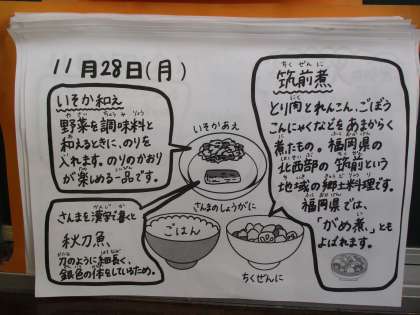 11月28日(月)
いそか和え
野菜を調味料と
和えるときに、のりを
入れます。のりのかおり
が楽しめる一品です。
さんまを漢字で書くと
秋刀魚、
刀のように細長く、
銀色の体をしているため。
いそかあえ
さんまのしょうがに
ごはん
ちくぜんに
ちくぜんに
筑前煮
とり肉とれんこん、ごぼう
こんにゃくなどをあまからく
煮たもの。福岡県の
北西部の筑前という
地域の郷土料理です。
福岡県では、
「がめ煮」とも
よばれます。